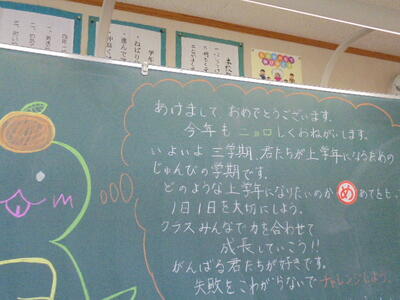 あけまして おめでとうございます。
今年も ニョロしくおねがいします。
いよいよ 三学期、君たちが上学年になるための
じゅんびの学期です。
どのような上学年になりたいのか めあてをも
1日1日を大切にしよう。
クラスみんなで力を合わせて
成長していこう!!
がんばる君たちが好きです。
失敗をこわがらないでチャレンジしよう。